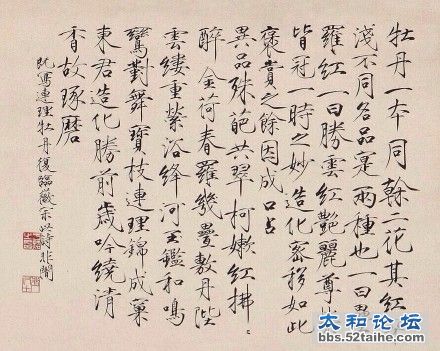 牡丹一本同榦二花其紅
淺不同名品寔兩種也一曰疊
羅紅一曰勝雲紅艷麗尊榮
皆冠一時之妙造化密移如此
褒賞之餘因成口占
異品殊葩共翠柯嫩紅拂〻
醉金荷春羅幾疊敷丹陛
雲縷重縈浴絳河玉鑑和鳴
鸞對舞寶枝連理錦成窠
東君造化勝前歲吟繞清
香故琢磨
既寫連理牡丹復臨徽宗此詩非闇
太和论坛
bbs.52taihe.com